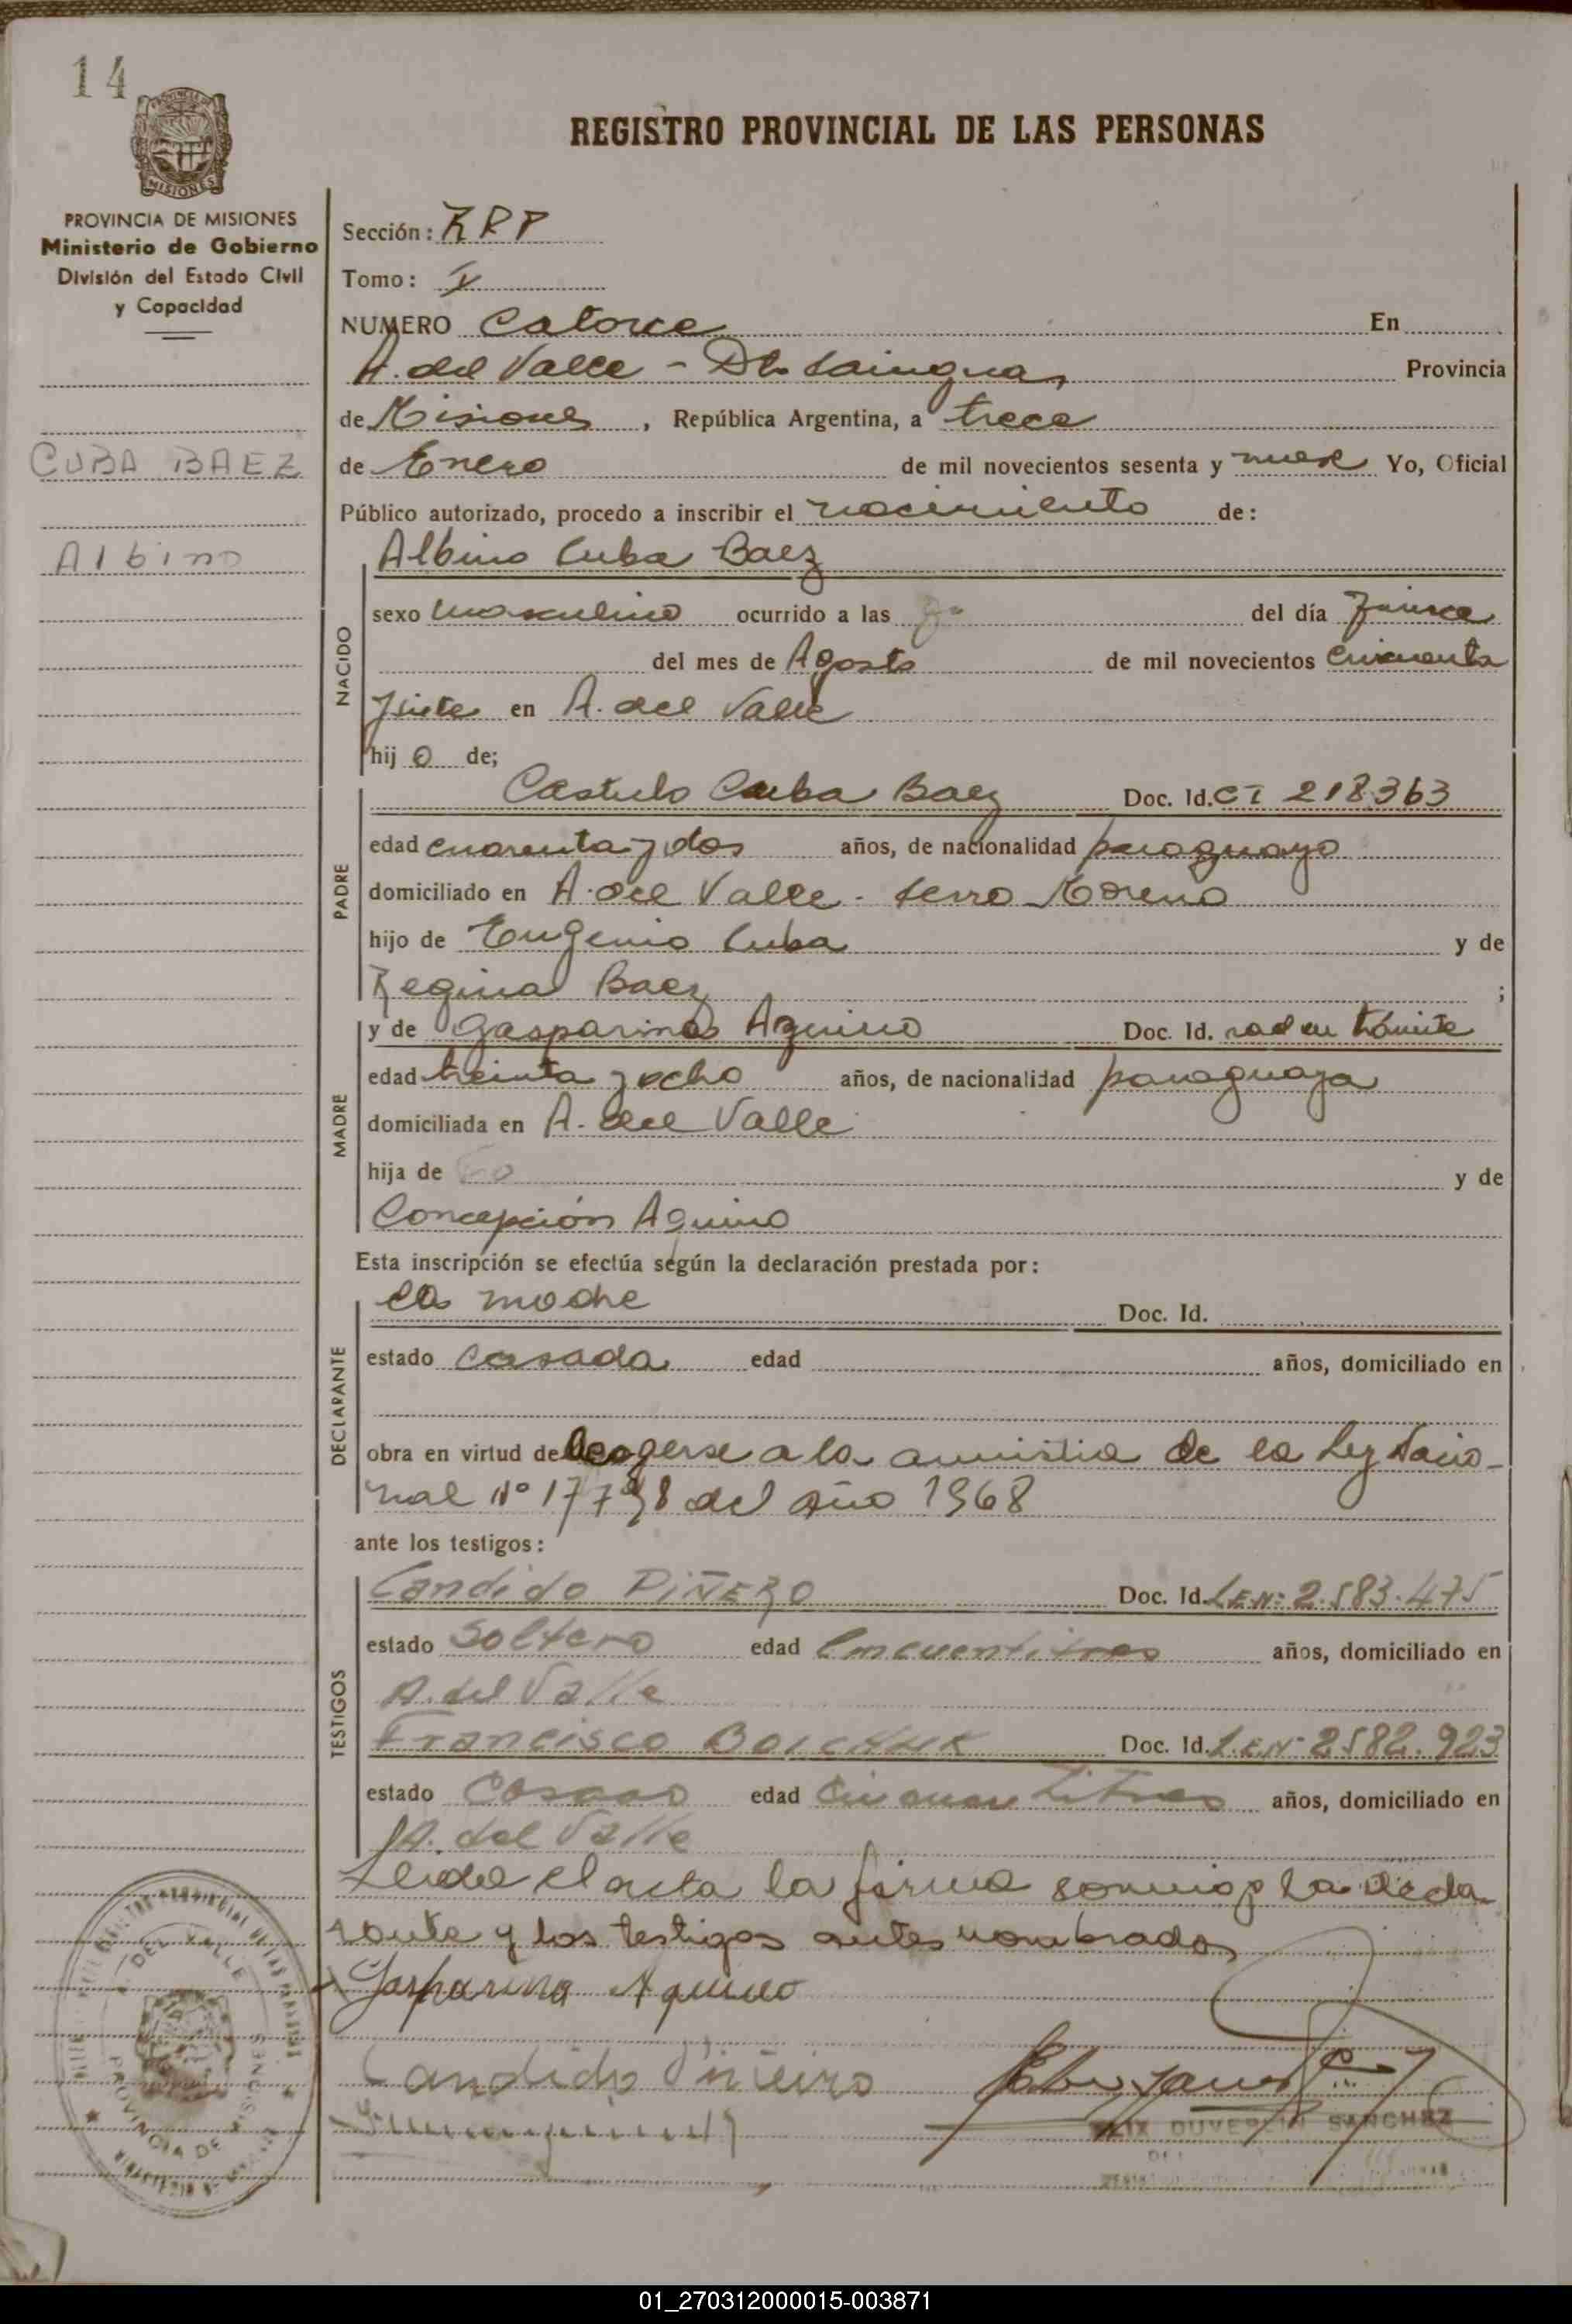 14
PROVINCIA DE MISIONES
Ministerio de Gobierno
División del Estado Civil
y Capacidad
CUBA BAEZ
Albino
REGISTRO PROVINCIAL DE LAS PERSONAS
Sección: RRP
Tomo: I
NUMERO Catorce En
A. del Valle - Dto Cainguas Provincia
de Misiones, República Argentina, a trece
de Enero de mil novecientos sesenta y nueve Yo, Oficial
Público autorizado, procedo a inscribir el nacimiento de:
Albino Cuba Baez
NACIDO
sexo masculino ocurrido a las del día quince
del mes de Agosto de mil novecientos cincuenta
siete en A. del Valle
hijo de;
PADRE
Castulo Cuba Baez Doc. Id. CI 218363
edad cuarenta y dos años, de nacionalidad paraguayo
domiciliado en A. del Valle - Cerro Moreno
hijo de Eugenio Cuba y de
Regina Baez ;
MADRE
y de Gasparina Aquino Doc. Id. rad en trámite
edad treinta y ocho años, de nacionalidad paraguaya
domiciliada en A. del Valle
hija de y de
Concepción Aquino
Esta inscripción se efectúa según la declaración prestada por:
DECLARANTE
la madre Doc. Id.
estado casada edad años, domiciliado en
obra en virtud de acogerse a la amnistia de la Ley Nacio-
nal Nº 17798 del año 1968
ante los testigos:
TESTIGOS
Candido PIÑERO Doc. Id. L.E.Nº 2.583.475
estado Soltero edad Cincuentitres años, domiciliado en
A. del Valle
Francisco BOICHUK Doc. Id. L.E.Nº 2582.923
estado Casado edad Cincuentitres años, domiciliado en
A. del Valle
Leida el acta la firma conmigo la decla
rante y los testigos antes nombrados
Gasparina Aquino
Candido Piñeiro
DEL VALLE
PROVINCIA DE MISIONES
SANCHEZ
01_270312000015-003871